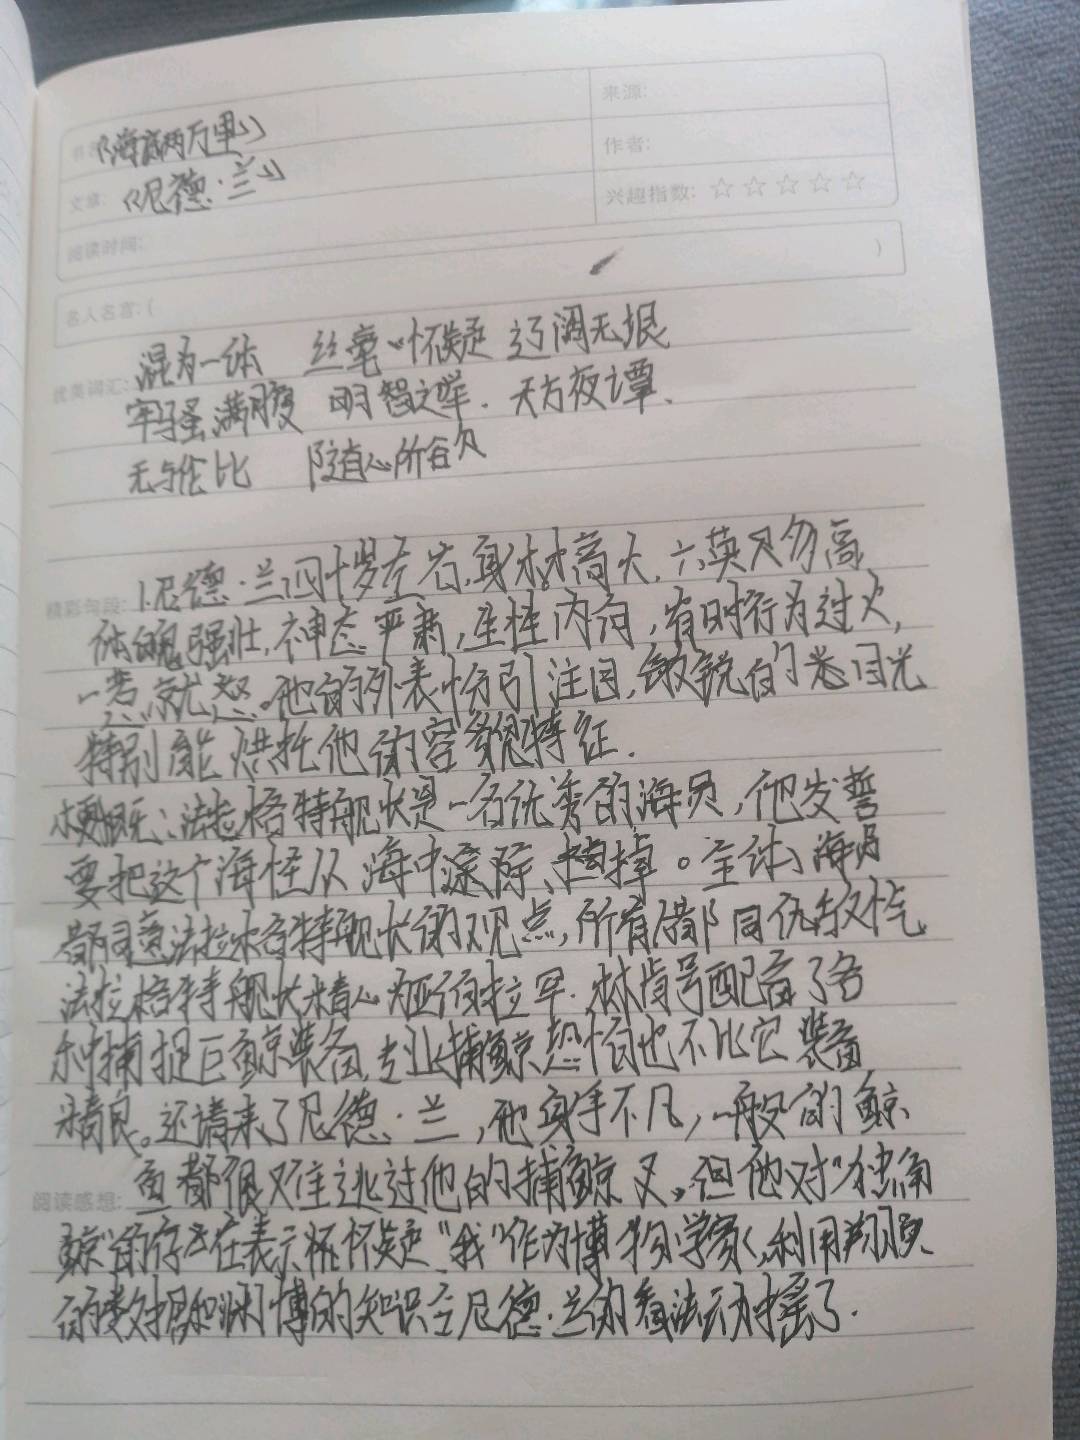 书名:《海底两万里》
来源:
作者:
文章: 《尼德·兰》
兴趣指数: ☆☆☆☆☆
阅读时间:
)
名人名言: (
优美词汇: 混为一体 丝毫怀疑 辽阔无垠
牢骚满腹 明智之举. 天方夜谭.
无与伦比 随心所欲
精彩句段: 1.尼德·兰四十岁左右,身材高大,六英尺勿高
体魄强壮,神态严肃,生性内向,有时行为过火,
一惹就怒。他的外表份引注目,敏锐的目光
特别能烘托他的容貌特征.
梗概:法拉格特舰长是一名优秀的海员,他发誓
要把这个海怪从海中除掉。全体海员
都同意法拉格特舰长的观点,所有都同仇敌忾
法拉格特舰长精心林肯号配备了各
种捕捉巨鲸装备,专业捕鲸恐怕也不比它装备
精良。还请来了尼德·兰,他身手不凡,一般的鲸
阅读感想: 鱼都很难逃过他的捕鲸叉。但他对“独角
鲸”的存在表示怀疑“我”作为博物学家,利用翔实
的数据和渊博的知识令尼德·兰的看法动摇了.